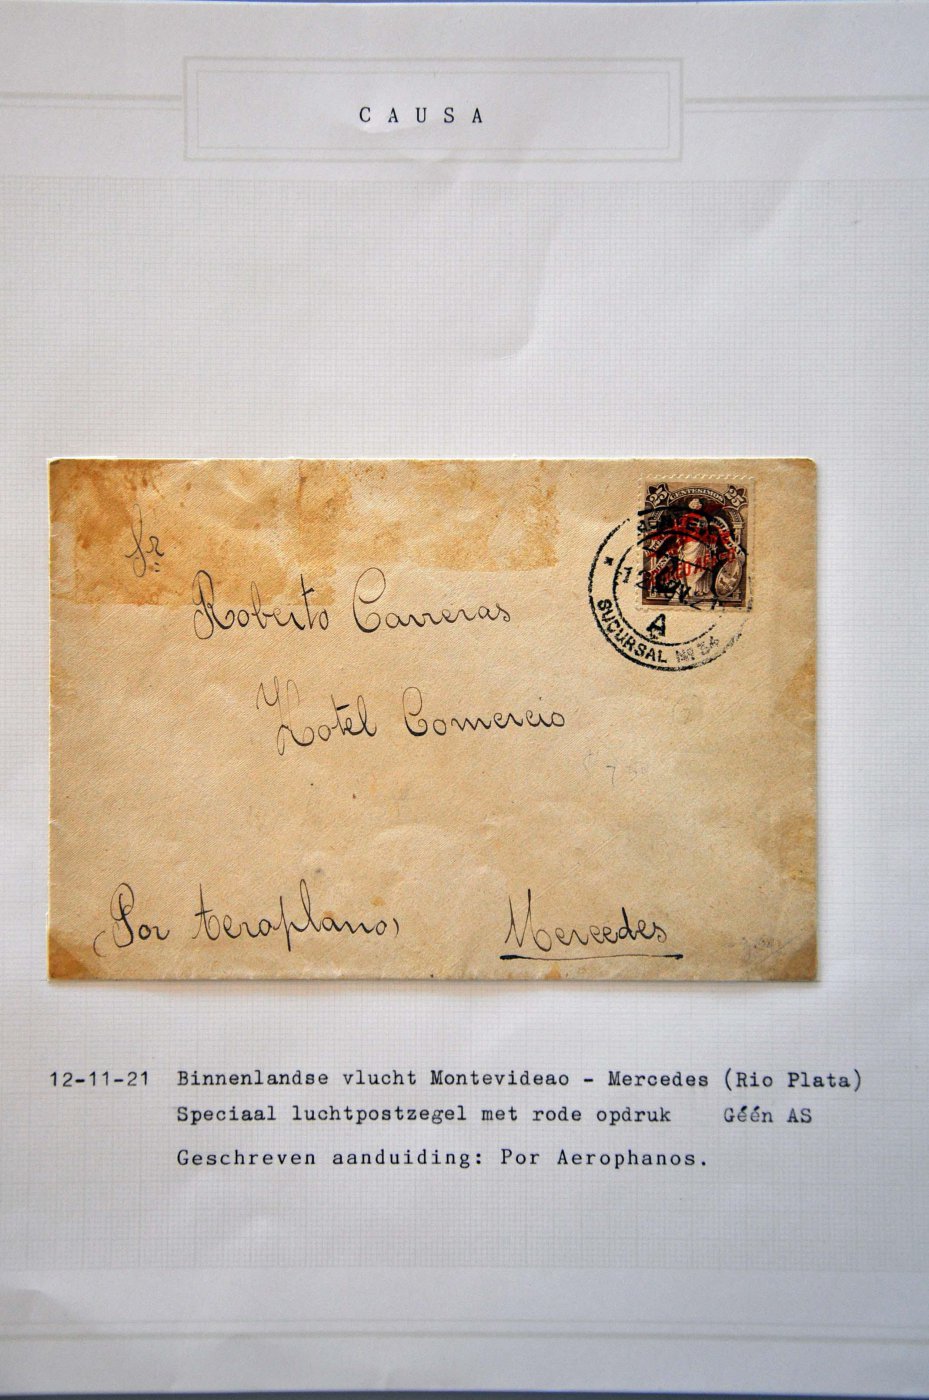 CAUSA
25 CENTESIMOS 25
CORREO AEREO
12 NOV 21
A
SUCURSAL Nº 34
Sr
Roberto Carreras
Hotel Comercio
(Por Aeroplano)
Mercedes
12-11-21 Binnenlandse vlucht Montevideao - Mercedes (Rio Plata)
Speciaal luchtpostzegel met rode opdruk Géén AS
Geschreven aanduiding: Por Aerophanos.